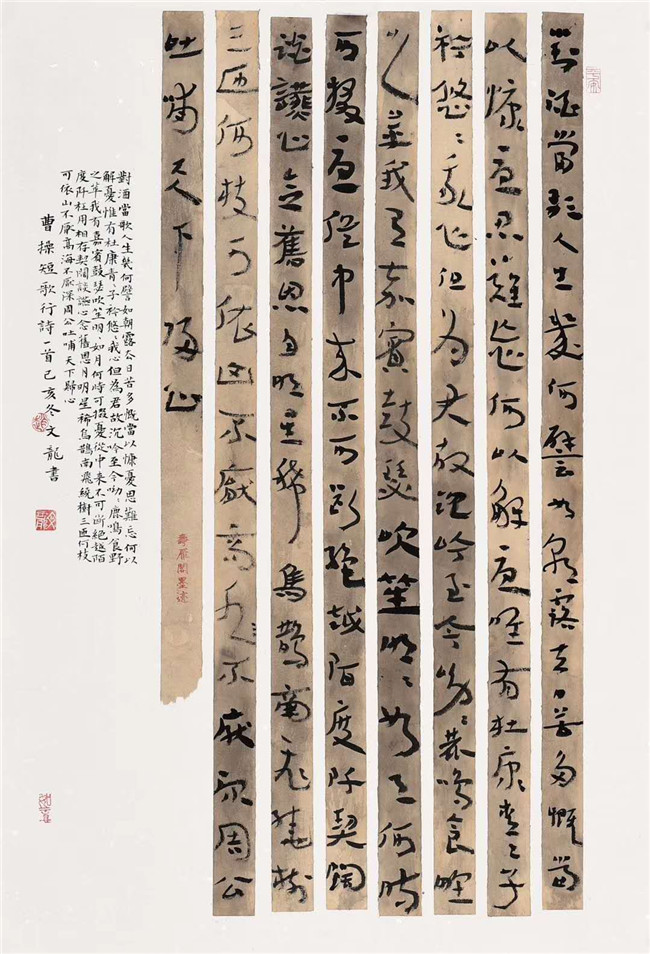 對酒當歌人生幾何譬如朝露去日苦多慨當
以慷憂思難忘何以解憂唯有杜康青〻子
衿悠〻我心但為君故沉吟至今呦〻鹿鳴食野
之苹我有嘉賓鼓瑟吹笙明〻如月何時
可掇憂從中来不可斷絕越陌度阡契闊
談讌心念舊恩月明星稀烏鵲南飛繞樹
三匝何枝可依山不厭高海不厭深周公
吐哺天下歸心
對酒當歌人生幾何譬如朝露去日苦多慨當以慷憂思難忘何以
解憂惟有杜康青〻子衿悠〻我心但為君故沉吟至今呦〻鹿鳴食野
之苹我有嘉賓鼓瑟吹笙明〻如月何時可掇憂從中来不可斷絕越陌
度阡枉用相存契闊談讌心念舊恩月明星稀烏鵲南飛繞樹三匝何枝
可依山不厭高海不厭深周公吐哺天下歸心
曹操短歌行詩一首己亥冬文龍書